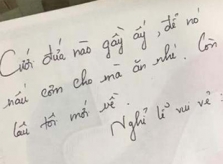 Cưới đứa nào gầy ấy, để nó
nấu cơm cho mà ăn nhé. Còn
lâu tôi mới về.
Nghỉ lễ vui vẻ